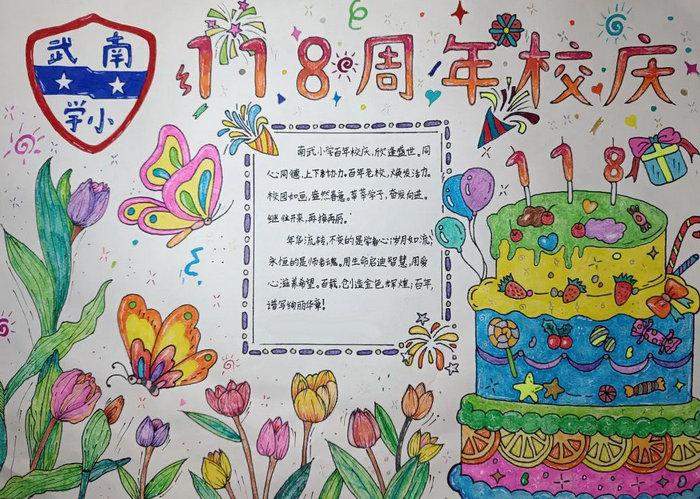 南武
小学
118周年校庆
118
南武小学百年校庆,欣逢盛世。同
心同德,上下齐协力。百年老校,焕发活力。
校园如画,盎然春意。莘莘学子,奋发向进。
继往开来,再接再厉。
年华流转,不变的是学者心;岁月如流,
永恒的是师者魂。用生命启迪智慧,用爱
心滋养希望。百载,创造金色辉煌;百年,
谱写绚丽华章!